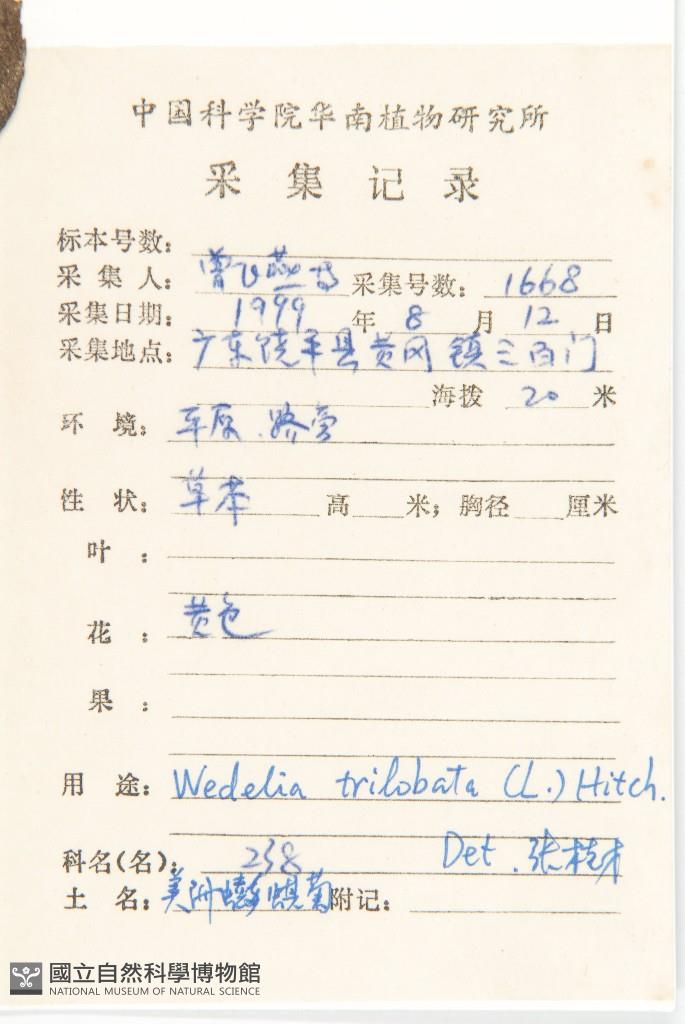 中国科学院华南植物研究所
采集记录
标本号数:
采集人: 曾飞燕等 采集号数: 1668
采集日期: 1999 年 8 月 12 日
采集地点: 广东饶平县黄冈镇三百门
海拨 20 米
环境: 平原.路旁
性状: 草本 高 米; 胸径 厘米
叶:
花: 黄色
果:
用途: Wedelia trilobata (L.) Hitch.
科名(名): 238 Det. 张桂才
土名: 美洲蟛蜞菊 附记:
國立自然科學博物館
NATIONAL MUSEUM OF NATURAL SCIENCE